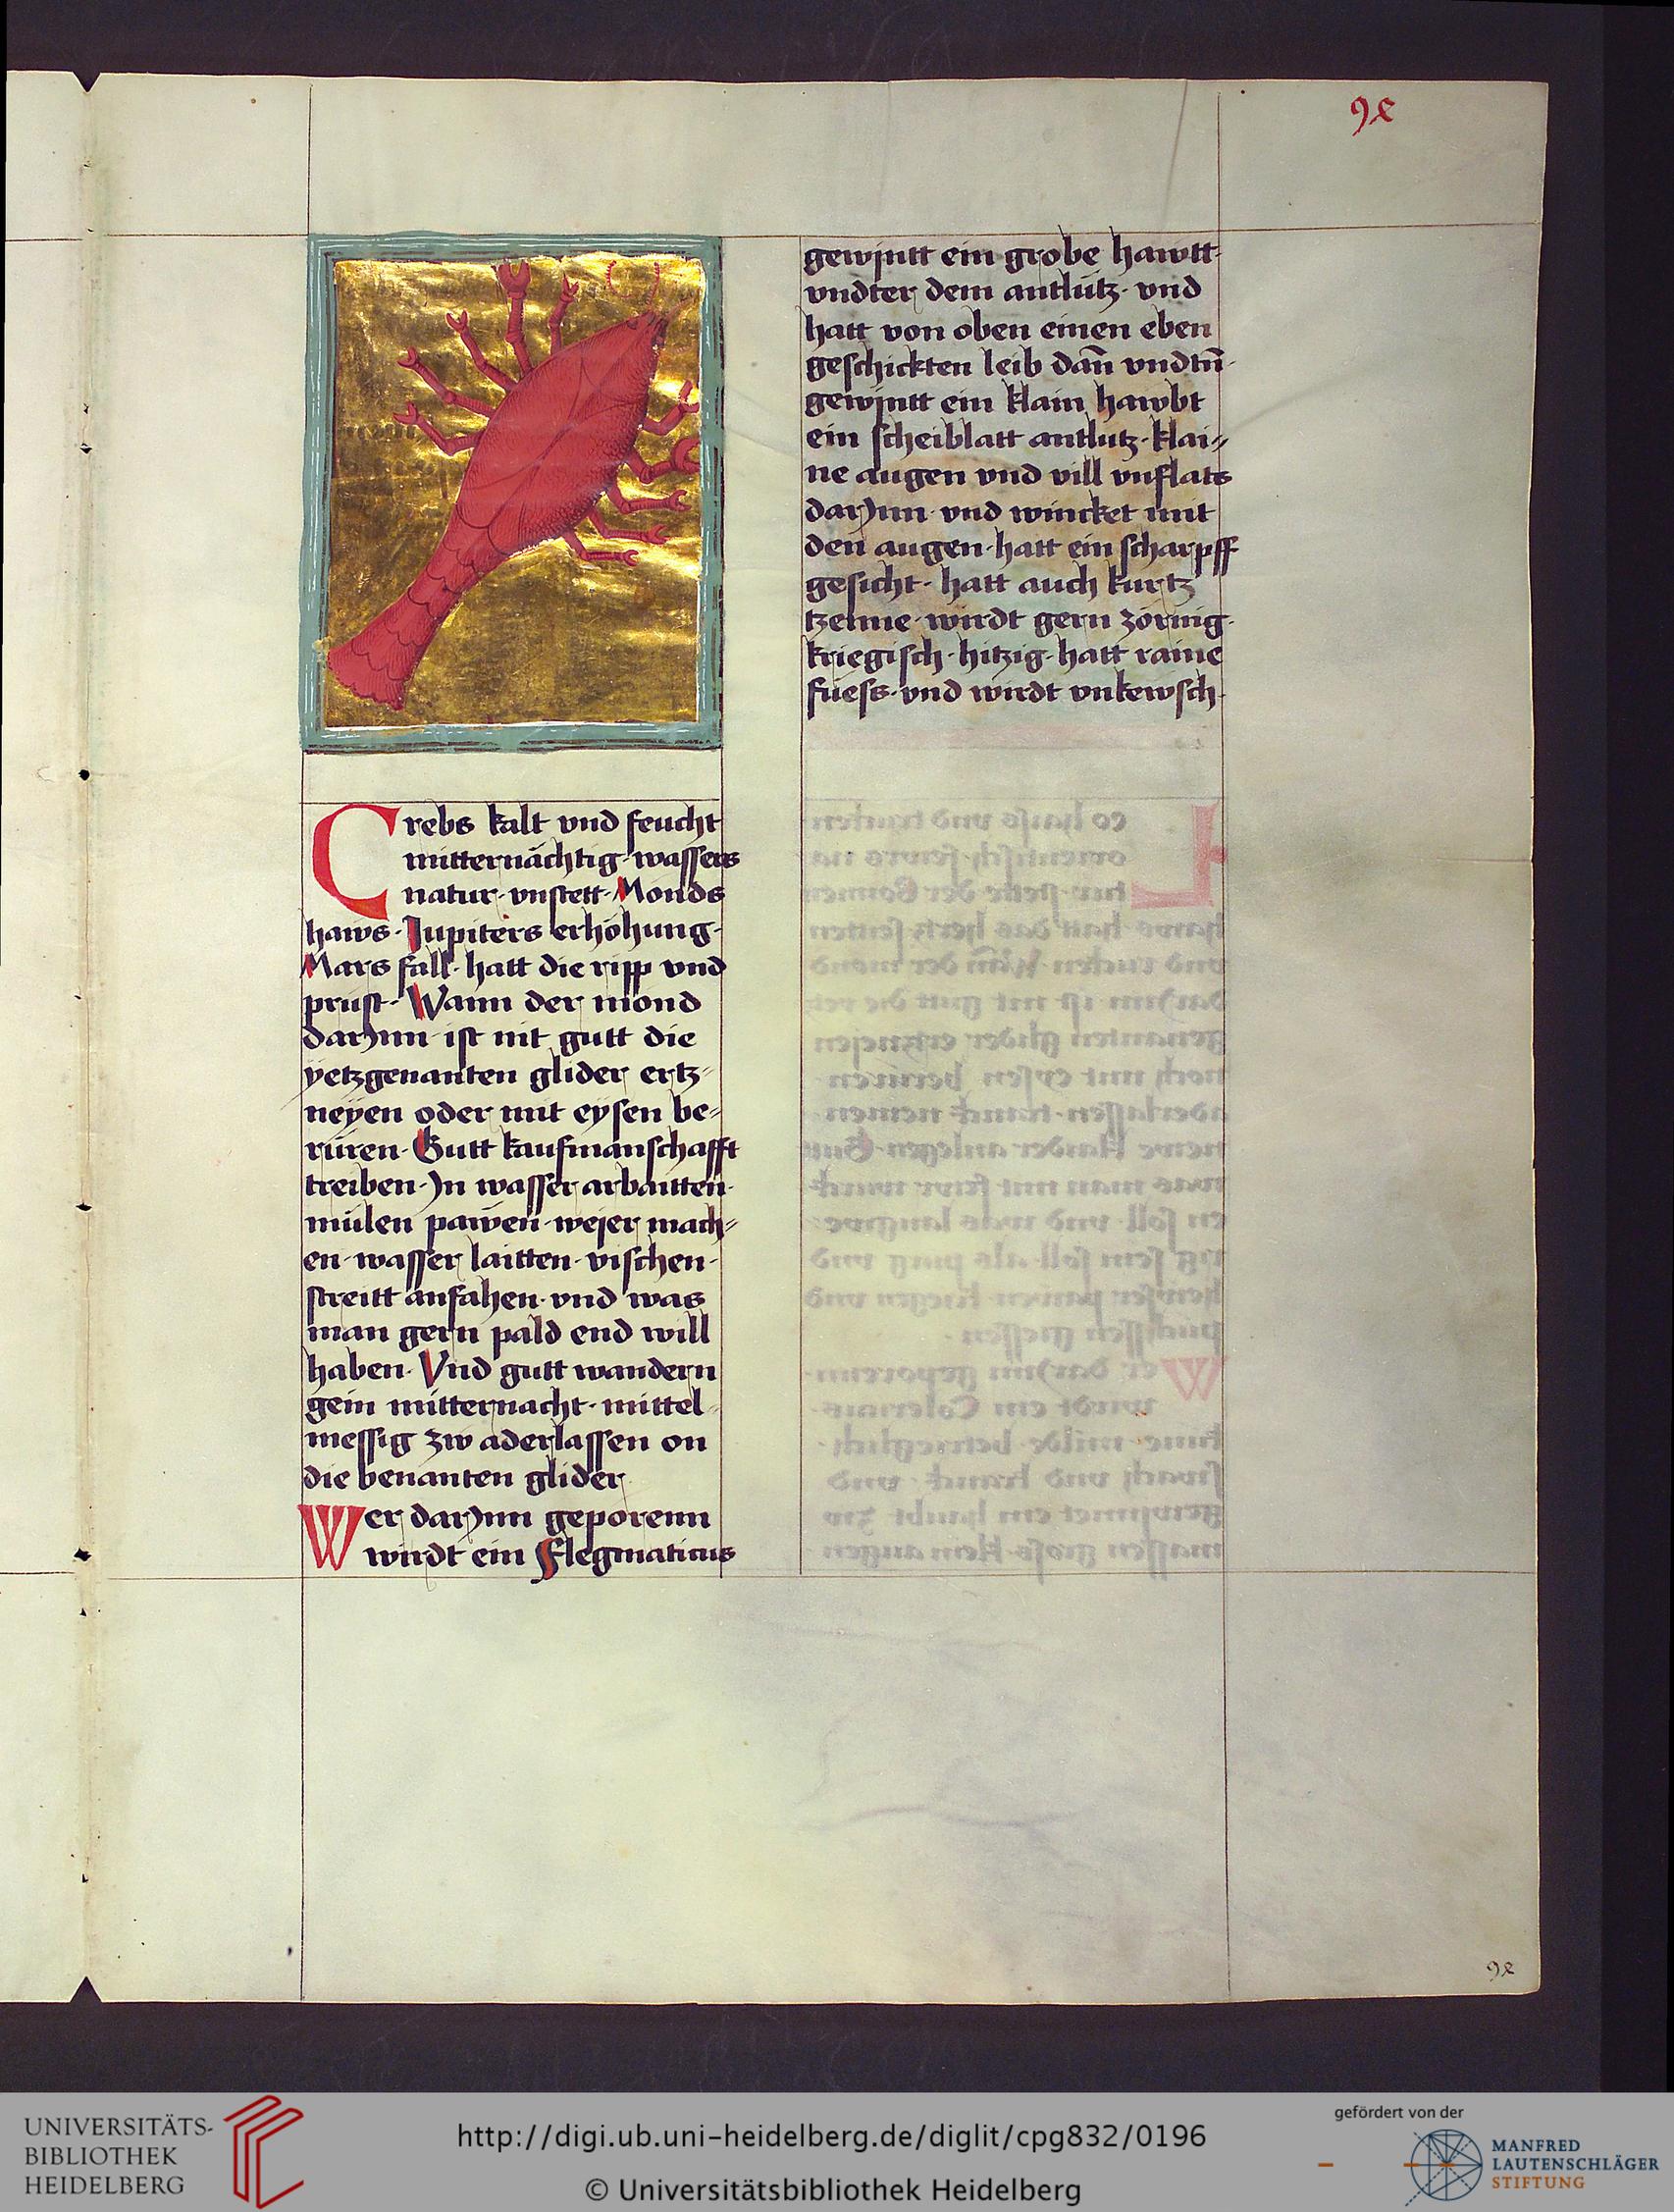 92
Crebs kalt vnd feucht
mitternächtig · wassers
natur · vnstett · Monds
haws · Jupiters erhöhung ·
Mars fall · hatt die ripp vnd
prust · Wann der mond
darynn ist nit gutt die
yetzgenanten glider ertz-
neyen oder mit eysen be-
rüren · Gutt kaufmanschafft
treiben · Jn wasser arbaitten ·
mülen pawen · wejer mach-
en · wasser laitten · vischen ·
streitt anfahen · vnd was
man gern pald end will
haben · Vnd gutt wandern
gein mitternacht · mittel-
messig zw aderlassen on
die benanten glider
Wer darynn geporenn
wirdt ein Flegmaticus
gewjntt ein grobe hawtt ·
vndter dem antlütz · vnd
hatt von oben einen eben
geschickten leib dañ vndtñ ·
gewjntt ein klain hawbt
ein scheiblatt antlutz · klai-
ne augen vnd vill vnflats
darynn · vnd wincket mit
den augen · hatt ein scharpff
gesicht · hatt auch kurtz
tzenne · wirdt gern zörnig ·
kriegisch · hitzig · hatt raine
füess · vnd wirdt vnkewsch ·
92
UNIVERSITÄTS-
BIBLIOTHEK
HEIDELBERG
http://digi.ub.uni-heidelberg.de/diglit/cpg832/0196
© Universitätsbibliothek Heidelberg
gefördert von der
MANFRED
LAUTENSCHLÄGER
STIFTUNG